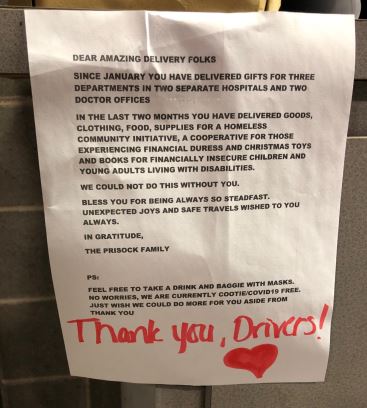 DEAR AMAZING DELIVERY FOLKS
SINCE JANUARY YOU HAVE DELIVERED GIFTS FOR THREE
DEPARTMENTS IN TWO SEPARATE HOSPITALS AND TWO
DOCTOR OFFICES
IN THE LAST TWO MONTHS YOU HAVE DELIVERED GOODS,
CLOTHING, FOOD, SUPPLIES FOR A HOMELESS
COMMUNITY INITIATIVE, A COOPERATIVE FOR THOSE
EXPERIENCING FINANCIAL DURESS AND CHRISTMAS TOYS
AND BOOKS FOR FINANCIALLY INSECURE CHILDREN AND
YOUNG ADULTS LIVING WITH DISABILITIES.
WE COULD NOT DO THIS WITHOUT YOU.
BLESS YOU FOR BEING ALWAYS SO STEADFAST.
UNEXPECTED JOYS AND SAFE TRAVELS WISHED TO YOU
ALWAYS.
IN GRATITUDE,
THE PRISOCK FAMILY
PS:
FEEL FREE TO TAKE A DRINK AND BAGGIE WITH MASKS.
NO WORRIES, WE ARE CURRENTLY COOTIE/COVID19 FREE.
JUST WISH WE COULD DO MORE FOR YOU ASIDE FROM
THANK YOU
Thank you, Drivers!